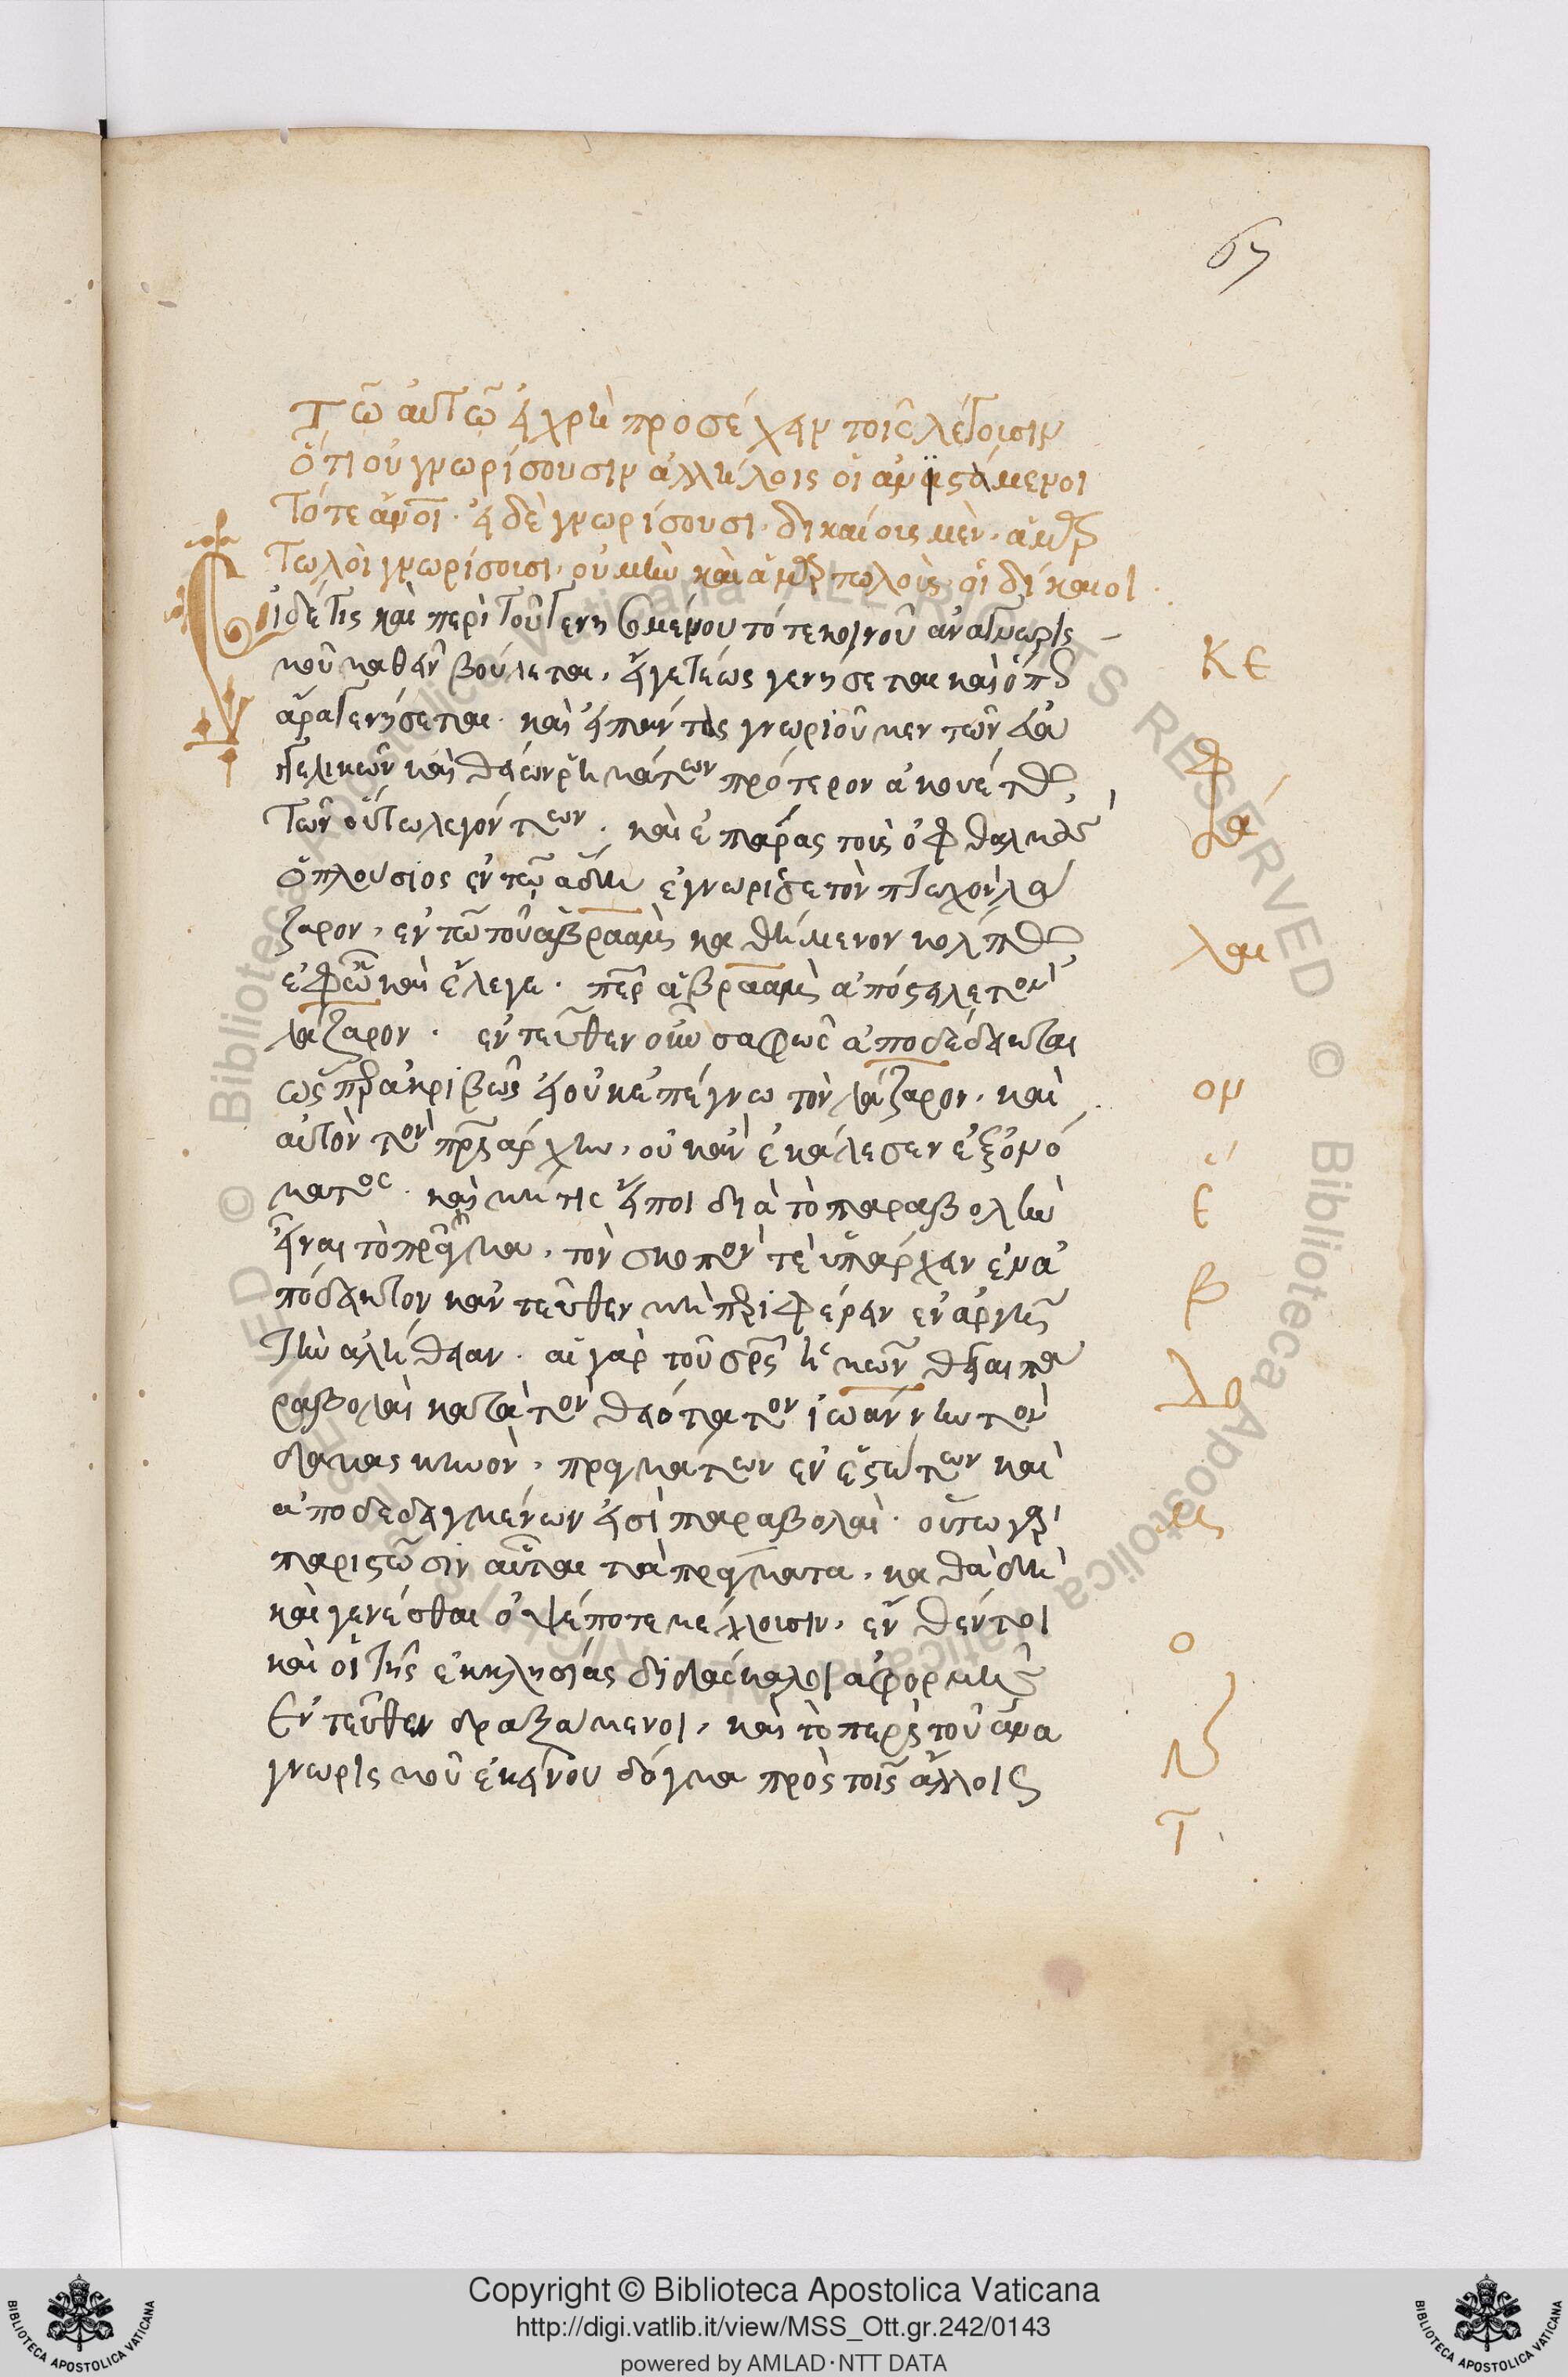 67
Τῶ αὐτῶ εἰ χρὴ προσέχειν τοῖς λέγουσιν
ὅτι οὐ γνωρίσουσιν ἀλλήλοις οἱ ἀνιστάμενοι
τότε ἄνοι· εἰ δὲ γνωρίσουσι, δικαίους μὲν, ἁμαρ
τωλοὶ γνωρίσουσι, οὐ μὴν καὶ ἁμαρτωλοὺς οἱ δίκαιοι
Εἰ δέ τις καὶ περὶ τοῦ γενησομένου τότε κοινοῦ ἀναγνωρισ
μοῦ μαθεῖν βούλεται, εἴγε τέως γενήσεται καὶ ὅπου
ἄρα γενήσεται· καὶ εἰ πάντως γνωριοῦμεν τῶν εὐα
γγελικῶν καὶ θείων ῥημάτων πρότερον ἀκουέτω,
τῶν οὕτω λεγόντων· καὶ ἐπάρας τοὺς ὀφθαλμοὺς
ὁ πλούσιος ἐν τῶ ἅδη ἐγνώρισε τὸν πτωχὸν λά
ζαρον, ἐν τῶ τοῦ ἀβραὰμ καθήμενον κόλπω
ἐφώνει καὶ ἔλεγε· περ ἀβραὰμ ἀπόστειλε τὸν
λάζαρον· ἐντεῦθεν οὖν σαφῶς ἀποδέδεικται
ὡς περ ἀκριβῶς εἰ οὐκ ἐπέγνω τὸν λάζαρον, καὶ
αὐτὸν τὸν πριάρχην, οὐκ ἂν ἐκάλεσεν ἐξ ὀνό
ματος· καὶ μή τις εἴποι διὰ τὸ παραβολὴν
εἶναι τὸ πρᾶγμα, τὸν σκοπὸν τε ὑπάρχειν ἐνα
πόδεικτον κἀντεῦθεν μὴ περιφέρειν ἐναργῆ
τὴν ἀλήθειαν· αἱ γὰρ τοῦ σρς ἡμῶν θεῖαι πα
ραβολαὶ κατὰ τὸν θειότατον ἰωάννην τὸν
δαμασκηνὸν, πραγμάτων ἐνεστώτων καὶ
ἀποδεδειγμένων εἰσὶ παραβολαὶ· οὕτω γὰρ
παριστῶσιν αὗται τὰ πράγματα, καθὰ δὴ
καὶ γενέσθαι ὀψέποτε μέλλουσιν, ἔνθέν τοι
καὶ οἱ τῆς ἐκκλησίας διδάσκαλοι ἀφορμῆς
ἐντεῦθεν δραξάμενοι, καὶ τὸ περὶ τοῦ ἀνα
γνωρισμοῦ ἐκείνου δόγμα πρὸς τοῖς ἄλλοις
κε
φ
ά
λαι
ον
ε
β
δο
ο
τ
Copyright © Biblioteca Apostolica Vaticana
http://digi.vatlib.it/view/MSS_Ott.gr.242/0143
powered by AMLAD·NTT DATA
BIBLIOTECA APOSTOLICA VATICANA
BIBLIOTECA APOSTOLICA VATICANA